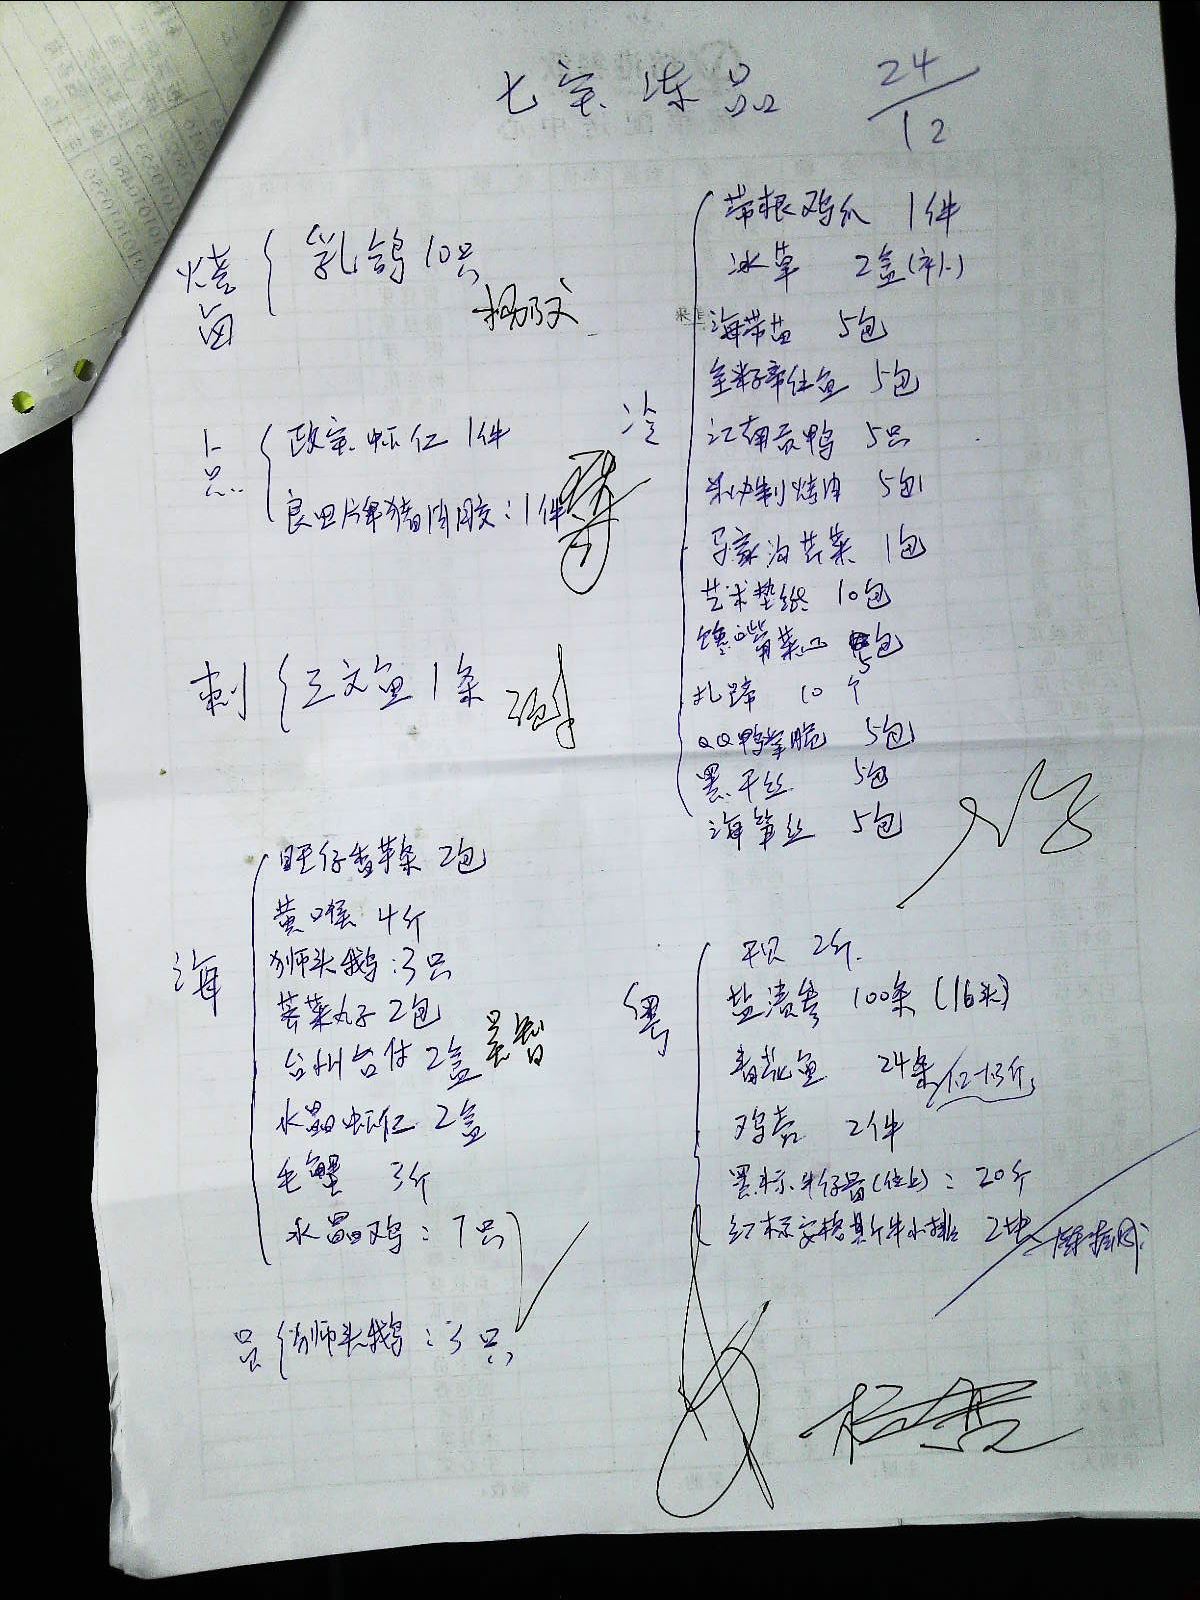 七宝冻品 24/12
烧卤
乳鸽10只
上只
政宝虾仁1件
良田牌猪肉胶:1件
刺
三文鱼1条
海
旺仔香芋条 2包
黄喉 4斤
狮头鹅:3只
芸菜丸子2包
台州台付2盒
水晶虾仁 2盒
毛蟹 3斤
水晶鸡:7只
狮头鹅:3只
冷
带根鸡爪 1件
冰草 2盒(补)
海带苗 5包
籽希伶鱼 5包
江南贡鸭 5只
秘制烤肉 5包
马家沟芹菜 1包
艺术垫纸 10包
馋嘴菜心 5包
扎蹄 10个
QQ鸭掌脆 5包
黑干丝 5包
海笋丝 5包
粤
干贝 2斤
盐渍参 100条(16头)
春花鱼 24条 1.2-1.3斤
鸡壳 2件
黑标牛仔骨(位上):20斤
红标安格斯牛小排 2块